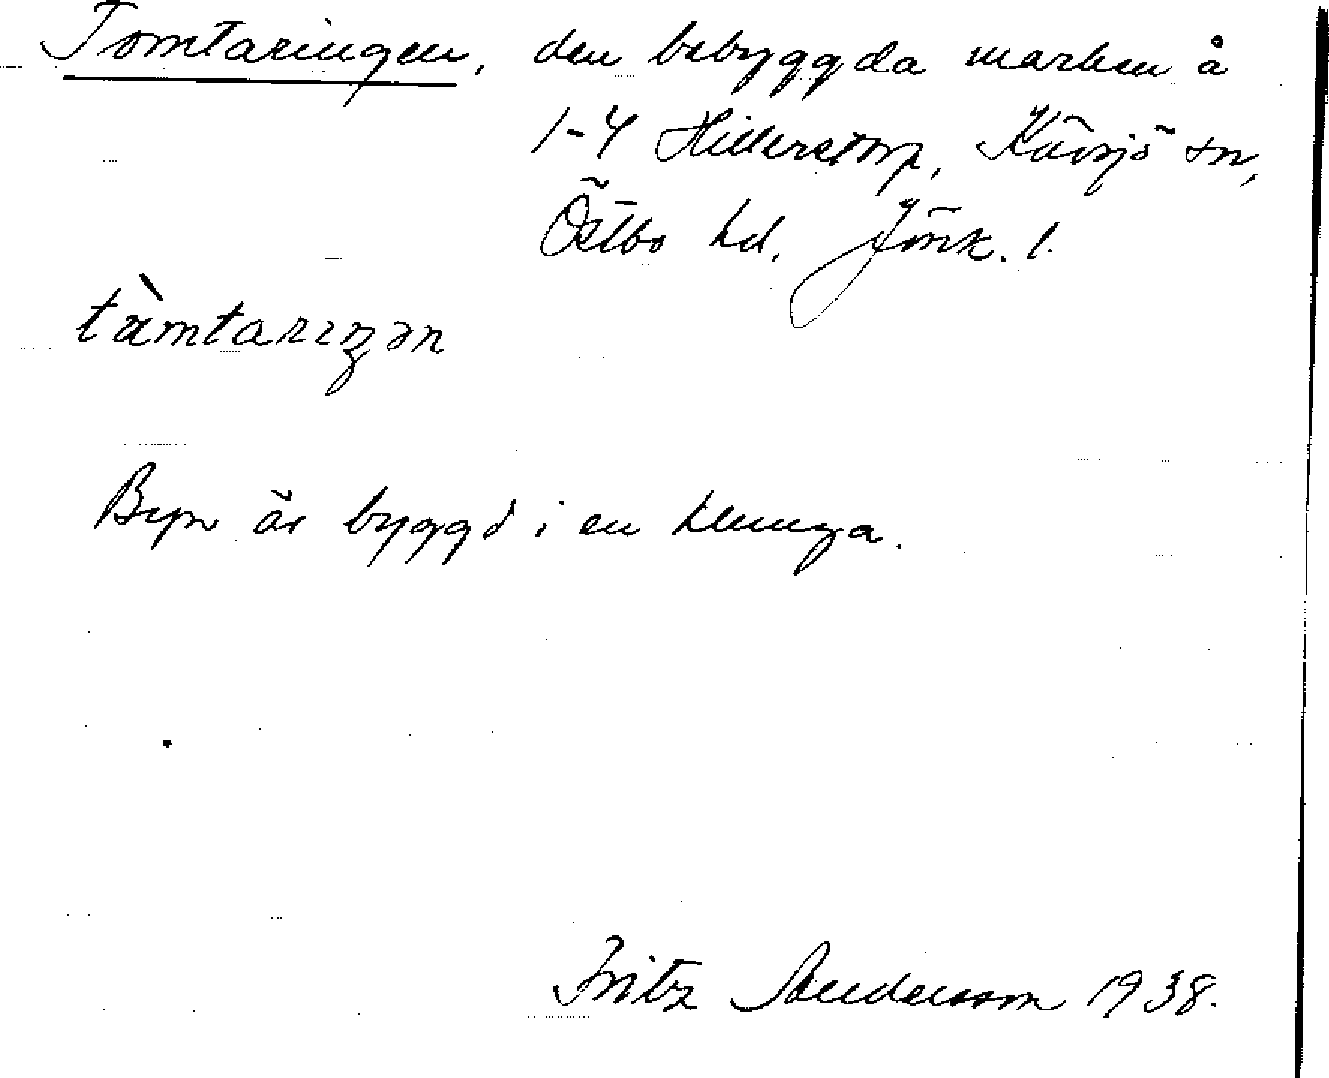 Tomtaringen, den bebyggda marken å
1-4 Hillerstorp, Kävsjö sn,
Östbo hd. Jönk. l.
tämtarıŋən
Byn är byggd i en klunga.
Fritz Andersson 1938.